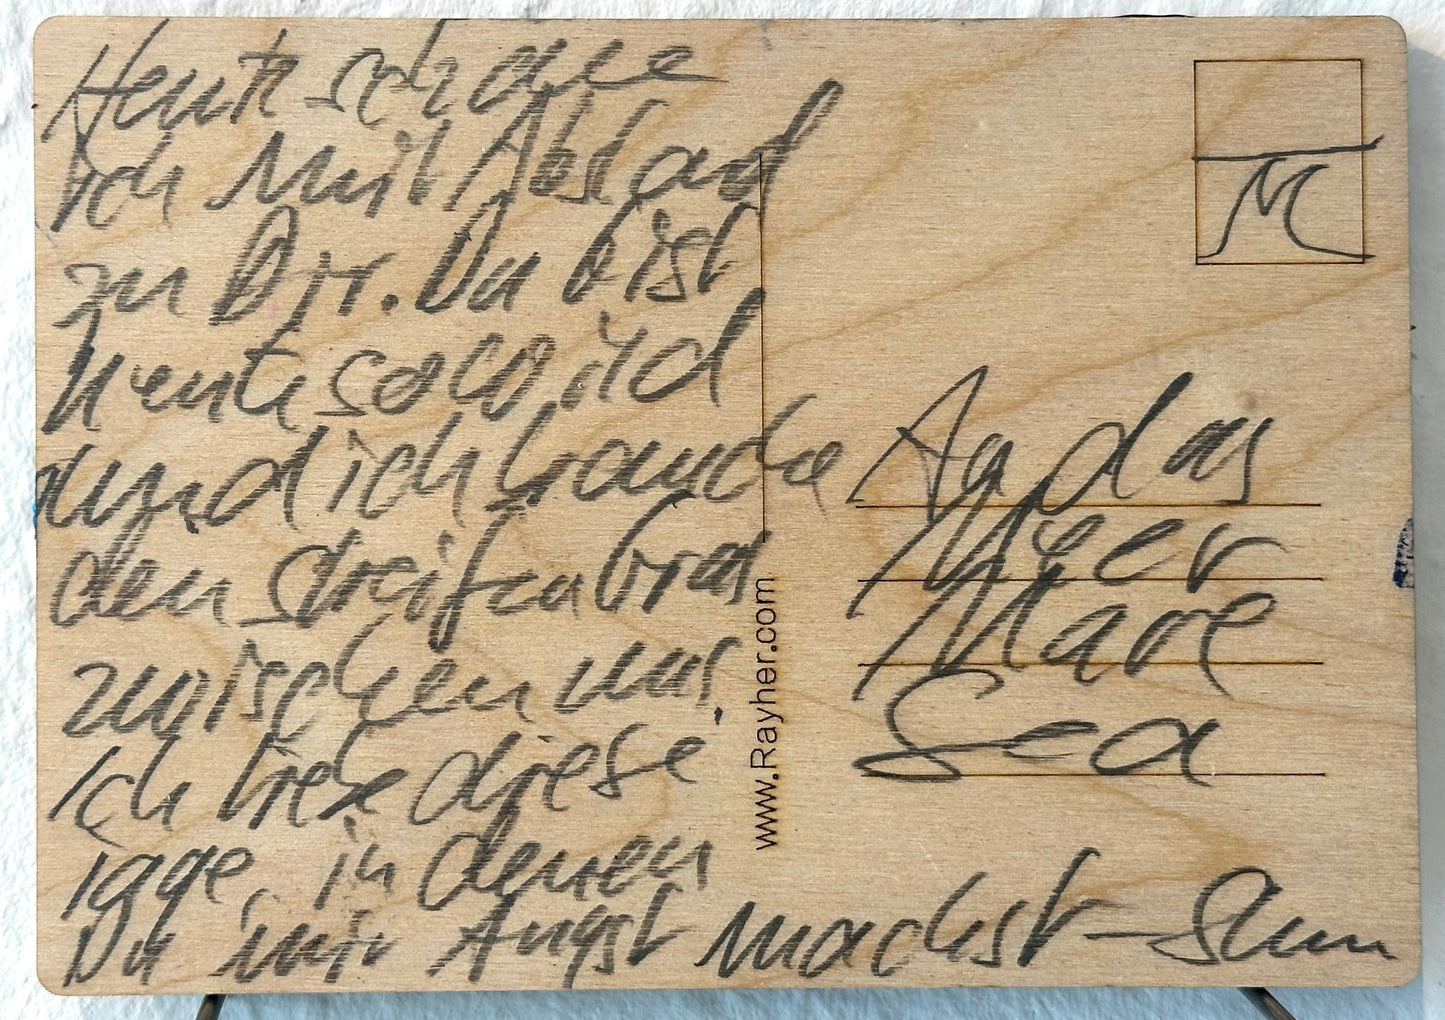 Heute schaue
ich mit Abstand
zu Dir. Du bist
heute so wild
und ich brauche
den Streifen Gras
zwischen uns.
Ich liebe diese
Tage, in denen
Du mir Angst machst –
An das
Meer
Mare
Sea
www.Rayher.com